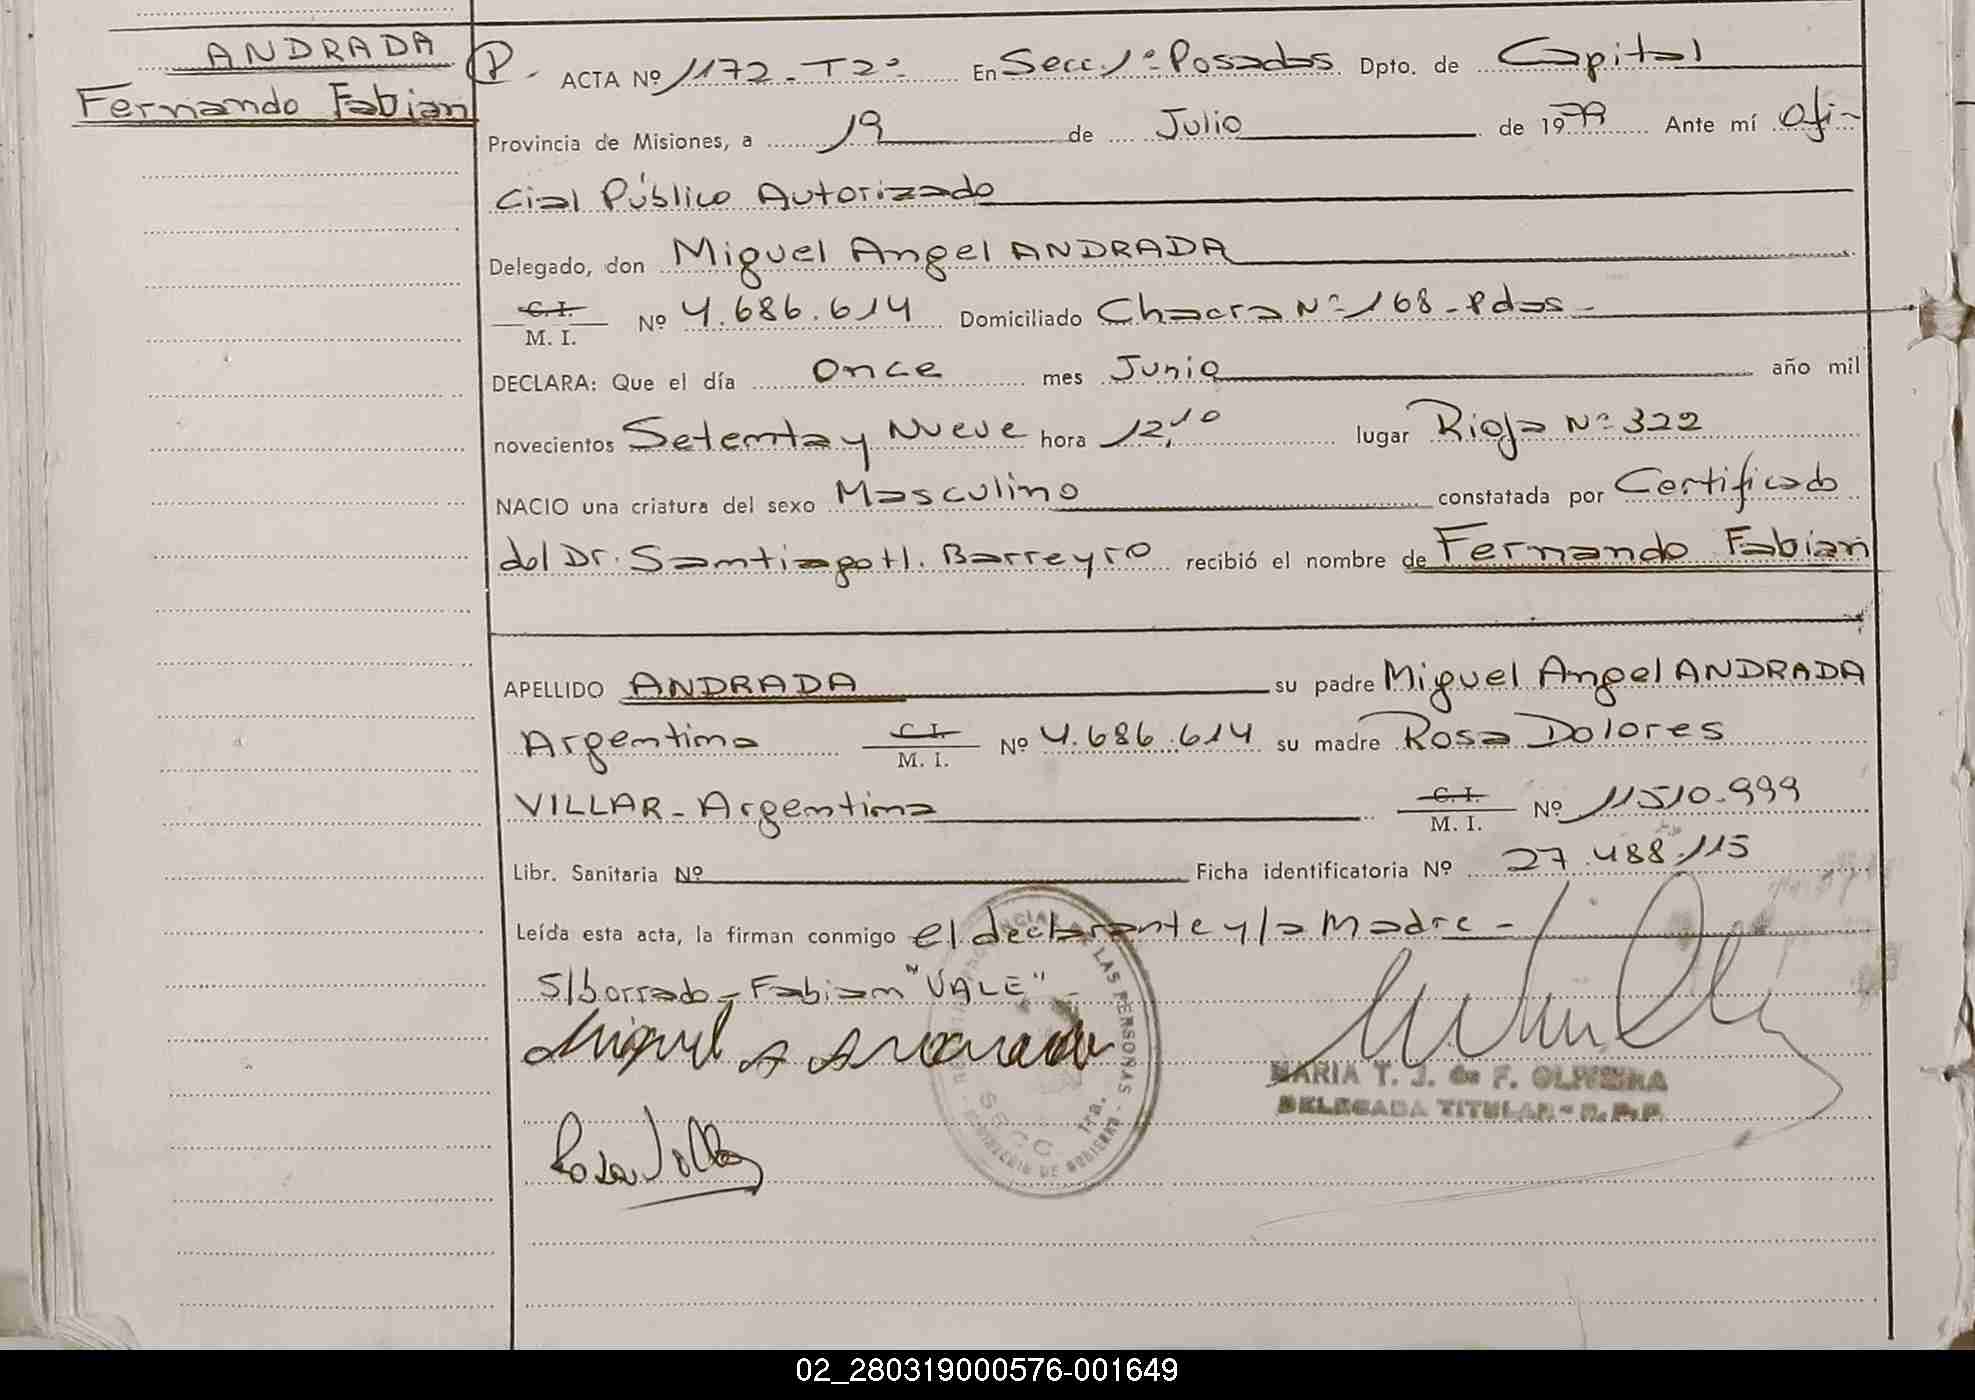 ANDRADA
Fernando Fabian
P. ACTA Nº 1172 - T2º En Secc. 1ª Posadas Dpto. de Capital
Provincia de Misiones, a 19 de Julio de 1979 Ante mí Ofi-
cial Público Autorizado
Delegado, don Miguel Angel ANDRADA
C.I.
M. I. Nº 4.686.614 Domiciliado Chacra Nº 168 - Pdas -
DECLARA: Que el día Once mes Junio año mil
novecientos Setenta y Nueve hora 12,10 lugar Rioja Nº 322
NACIO una criatura del sexo Masculino constatada por Certificado
del Dr. Santiago H. Barreyro recibió el nombre de Fernando Fabian
APELLIDO ANDRADA su padre Miguel Angel ANDRADA
Argentino C.I.
M. I. Nº 4.686.614 su madre Rosa Dolores
VILLAR - Argentina C.I.
M. I. Nº 11510.999
Libr. Sanitaria Nº Ficha identificatoria Nº 27.488.115
Leída esta acta, la firman conmigo el declarante y la Madre -
S/borrado - Fabian "VALE" -
Miguel A Andrada
MARIA T. J. de F. OLIVEIRA
DELEGADA TITULAR - R. P. P.
Rosa Villar
LAS PERSONAS
SECC 1ra.
MINISTERIO DE GOBIERNO
02_280319000576-001649